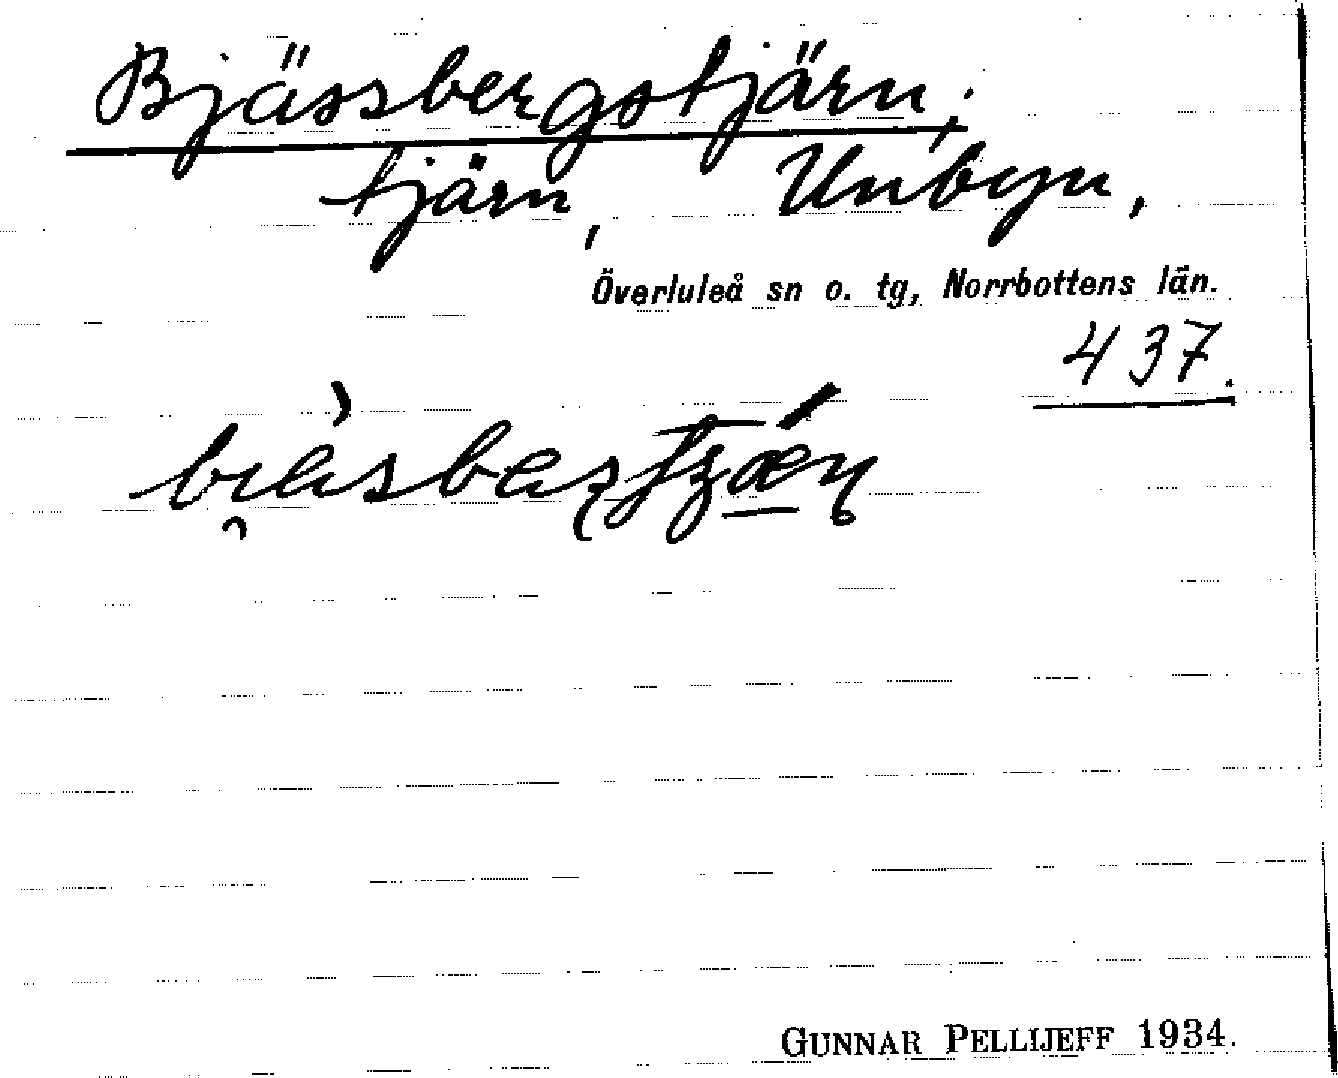 Bjässbergstjärn;
tjärn, Unbyn,
Överluleå sn o. tg, Norrbottens län.
437.
GUNNAR PELLIJEFF 1934.